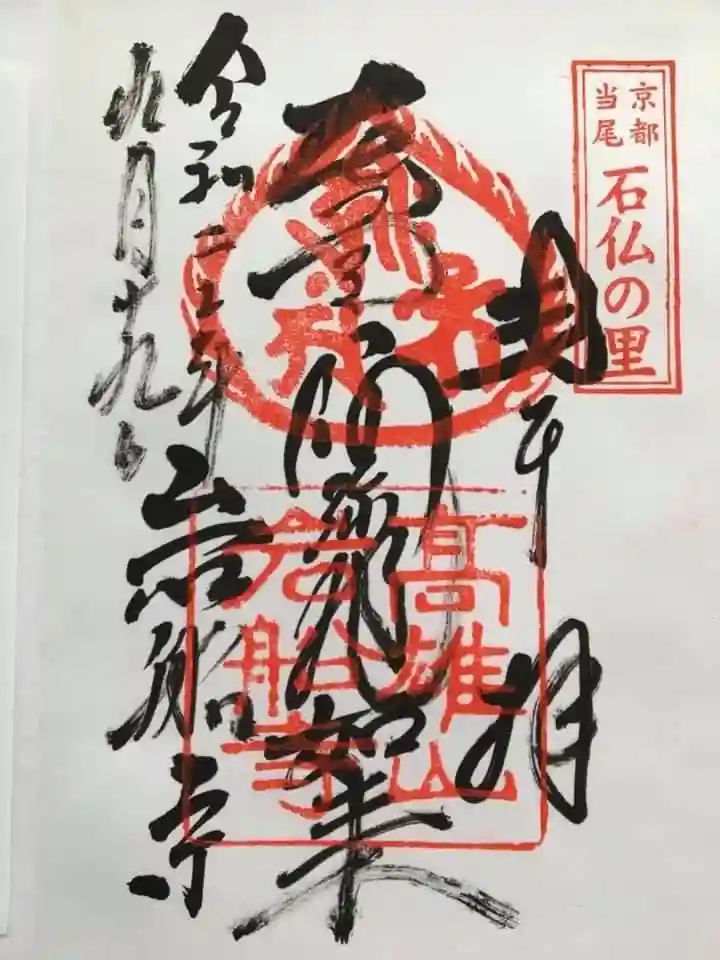 京都
当尾
石仏の里
奉拝
阿弥陀如来
高雄山
岩船寺
令和二年
九月十九日
岩船寺